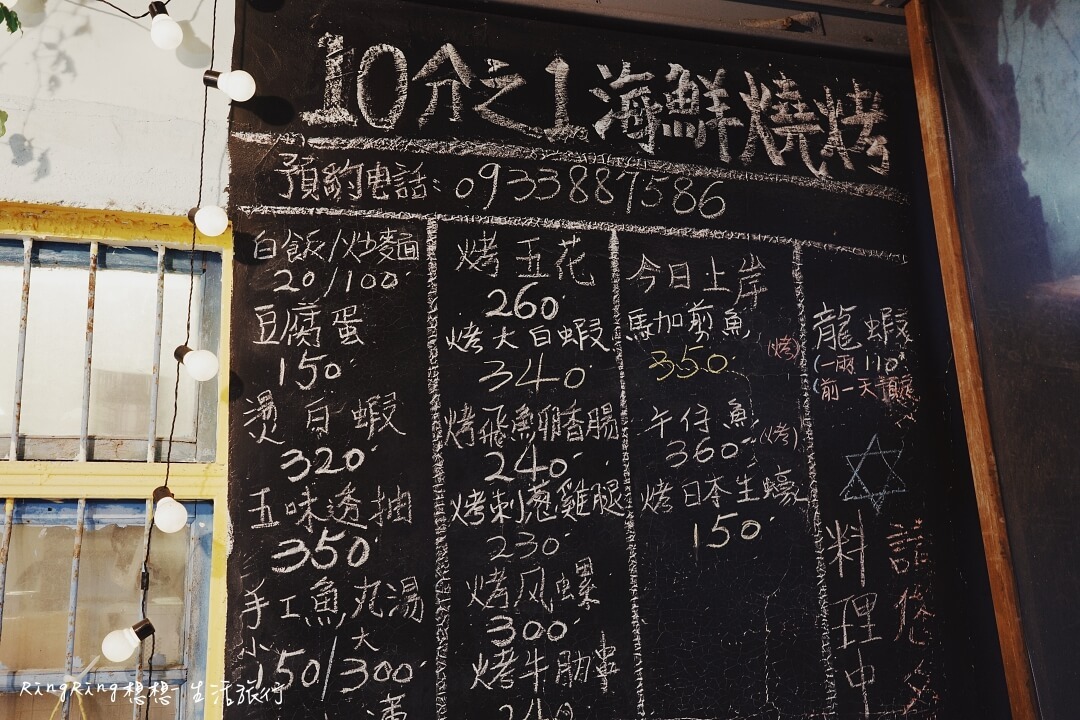 10分之1海鮮燒烤
預約电話：0933887586
白飯/炒麵
20/100
豆腐蛋
150
燙白蝦
320
五味透抽
350
手工魚丸湯
小 大
150/300
烤五花
260
烤大白蝦
340
烤飛魚卵香腸
240
烤刺蔥雞腿
230
烤风螺
300
烤牛肋串
240
今日上岸
馬加剪魚
350 (烤)
午仔魚
360 (烤)
烤日本生蠔
150
龍蝦
(一兩110
(前一天預
料理中
請
RingRing想想-生活旅行